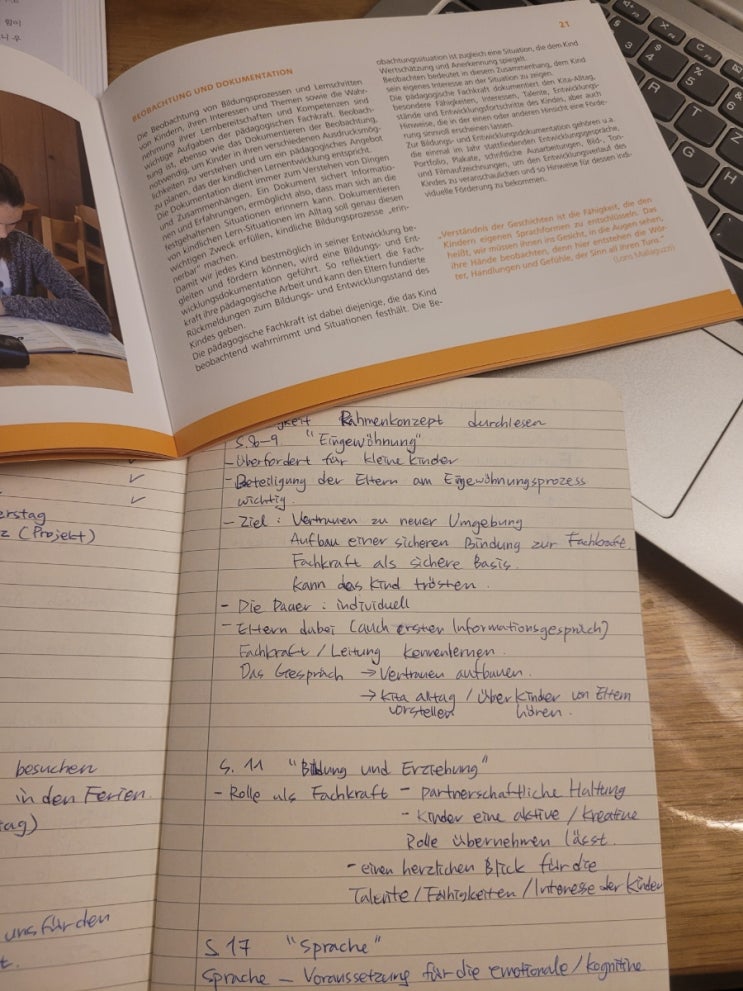 21
BEOBACHTUNG UND DOKUMENTATION
Die Beobachtung von Bildungsprozessen und Lernschritten
von Kindern, ihren Interessen und Themen sowie die Wahr-
nehmung ihrer Lernbereitschaften und Kompetenzen sind
wichtige Aufgaben der pädagogischen Fachkraft. Beobach-
tung ist, ebenso wie das Dokumentieren der Beobachtung,
notwendig, um Kinder in ihren verschiedenen Ausdrucksmög-
lichkeiten zu verstehen und um ein pädagogisches Angebot
zu planen, das der kindlichen Lernentwicklung entspricht.
Die Dokumentation dient immer zum Verstehen von Dingen
und Zusammenhängen. Ein Dokument sichert Informatio-
nen und Erfahrungen, ermöglicht also, dass man sich an die
festgehaltenen Situationen erinnern kann. Dokumentieren
von kindlichen Lern-Situationen im Alltag soll genau diesen
wichtigen Zweck erfüllen, kindliche Bildungsprozesse „erin-
nerbar“ machen.
Damit wir jedes Kind bestmöglich in seiner Entwicklung be-
gleiten und fördern können, wird eine Bildungs- und Ent-
wicklungsdokumentation geführt. So reflektiert die Fach-
kraft ihre pädagogische Arbeit und kann den Eltern fundierte
Rückmeldungen zum Bildungs- und Entwicklungsstand des
Kindes geben.
Die pädagogische Fachkraft ist dabei diejenige, die das Kind
beobachtend wahrnimmt und Situationen festhält. Die Be-
obachtungssituation ist zugleich eine Situation, die dem Kind
Wertschätzung und Anerkennung spiegelt.
Beobachten bedeutet in diesem Zusammenhang, dem Kind
sein eigenes Interesse an der Situation zu zeigen.
Die pädagogische Fachkraft dokumentiert den Kita-Alltag,
besondere Fähigkeiten, Interessen, Talente, Entwicklungs-
stände und Entwicklungsfortschritte des Kindes, aber auch
Hinweise, die in der einen oder anderen Hinsicht eine Förde-
rung sinnvoll erscheinen lassen.
Zur Bildungs- und Entwicklungsdokumentation gehören u.a.
die einmal im Jahr stattfindenden Entwicklungsgespräche,
Portfolio, Plakate, schriftliche Ausarbeitungen, Bild-, Ton-
und Filmaufzeichnungen, um den Entwicklungsverlauf des
Kindes zu veranschaulichen und so Hinweise für dessen indi-
viduelle Förderung zu bekommen.
„Verständnis der Geschichten ist die Fähigkeit, die den
Kindern eigenen Sprachformen zu entschlüsseln. Das
heißt, wir müssen ihnen ins Gesicht, in die Augen sehen,
ihre Hände beobachten, denn hier entstehen die Wör-
ter, Handlungen und Gefühle, der Sinn all ihren Tuns.“
(Loris Malaguzzi)
Rahmenkonzept durchlesen
S. 8-9. "Eingewöhnung"
- Überfordert für kleine Kinder
- Beteiligung der Eltern am Eigewöhnungsprozess
wichtig.
- Ziel : Vertrauen zu neuer Umgebung
Aufbau einer sicheren Bindung zur Fachkraft.
Fachkraft als sichere Basis.
kann das Kind trösten.
- Die Dauer : individuell
- Eltern dabei (auch ersten Informationsgespräch)
Fachkraft / Leitung kennenlernen.
Das Gespräch → Vertrauen aufbauen.
→ Kita altag / über Kinder von Eltern
vorstellen hören.
S. 11 "Bildung und Erziehung"
- Rolle als Fachkraft - partnerschaftliche Haltung
- Kinder eine aktive / kreative
Rolle übernehmen lässt.
- einen herzlichen Blick für die
Talente / Fähigkeiten / Interesse der Kinder
S 17 "Sprache"
Sprache - Voraussetzung für die emotionale / kognitive
erstag
z (Projekt)
besuchen
in den Ferien.
tag)
uns für den
t.